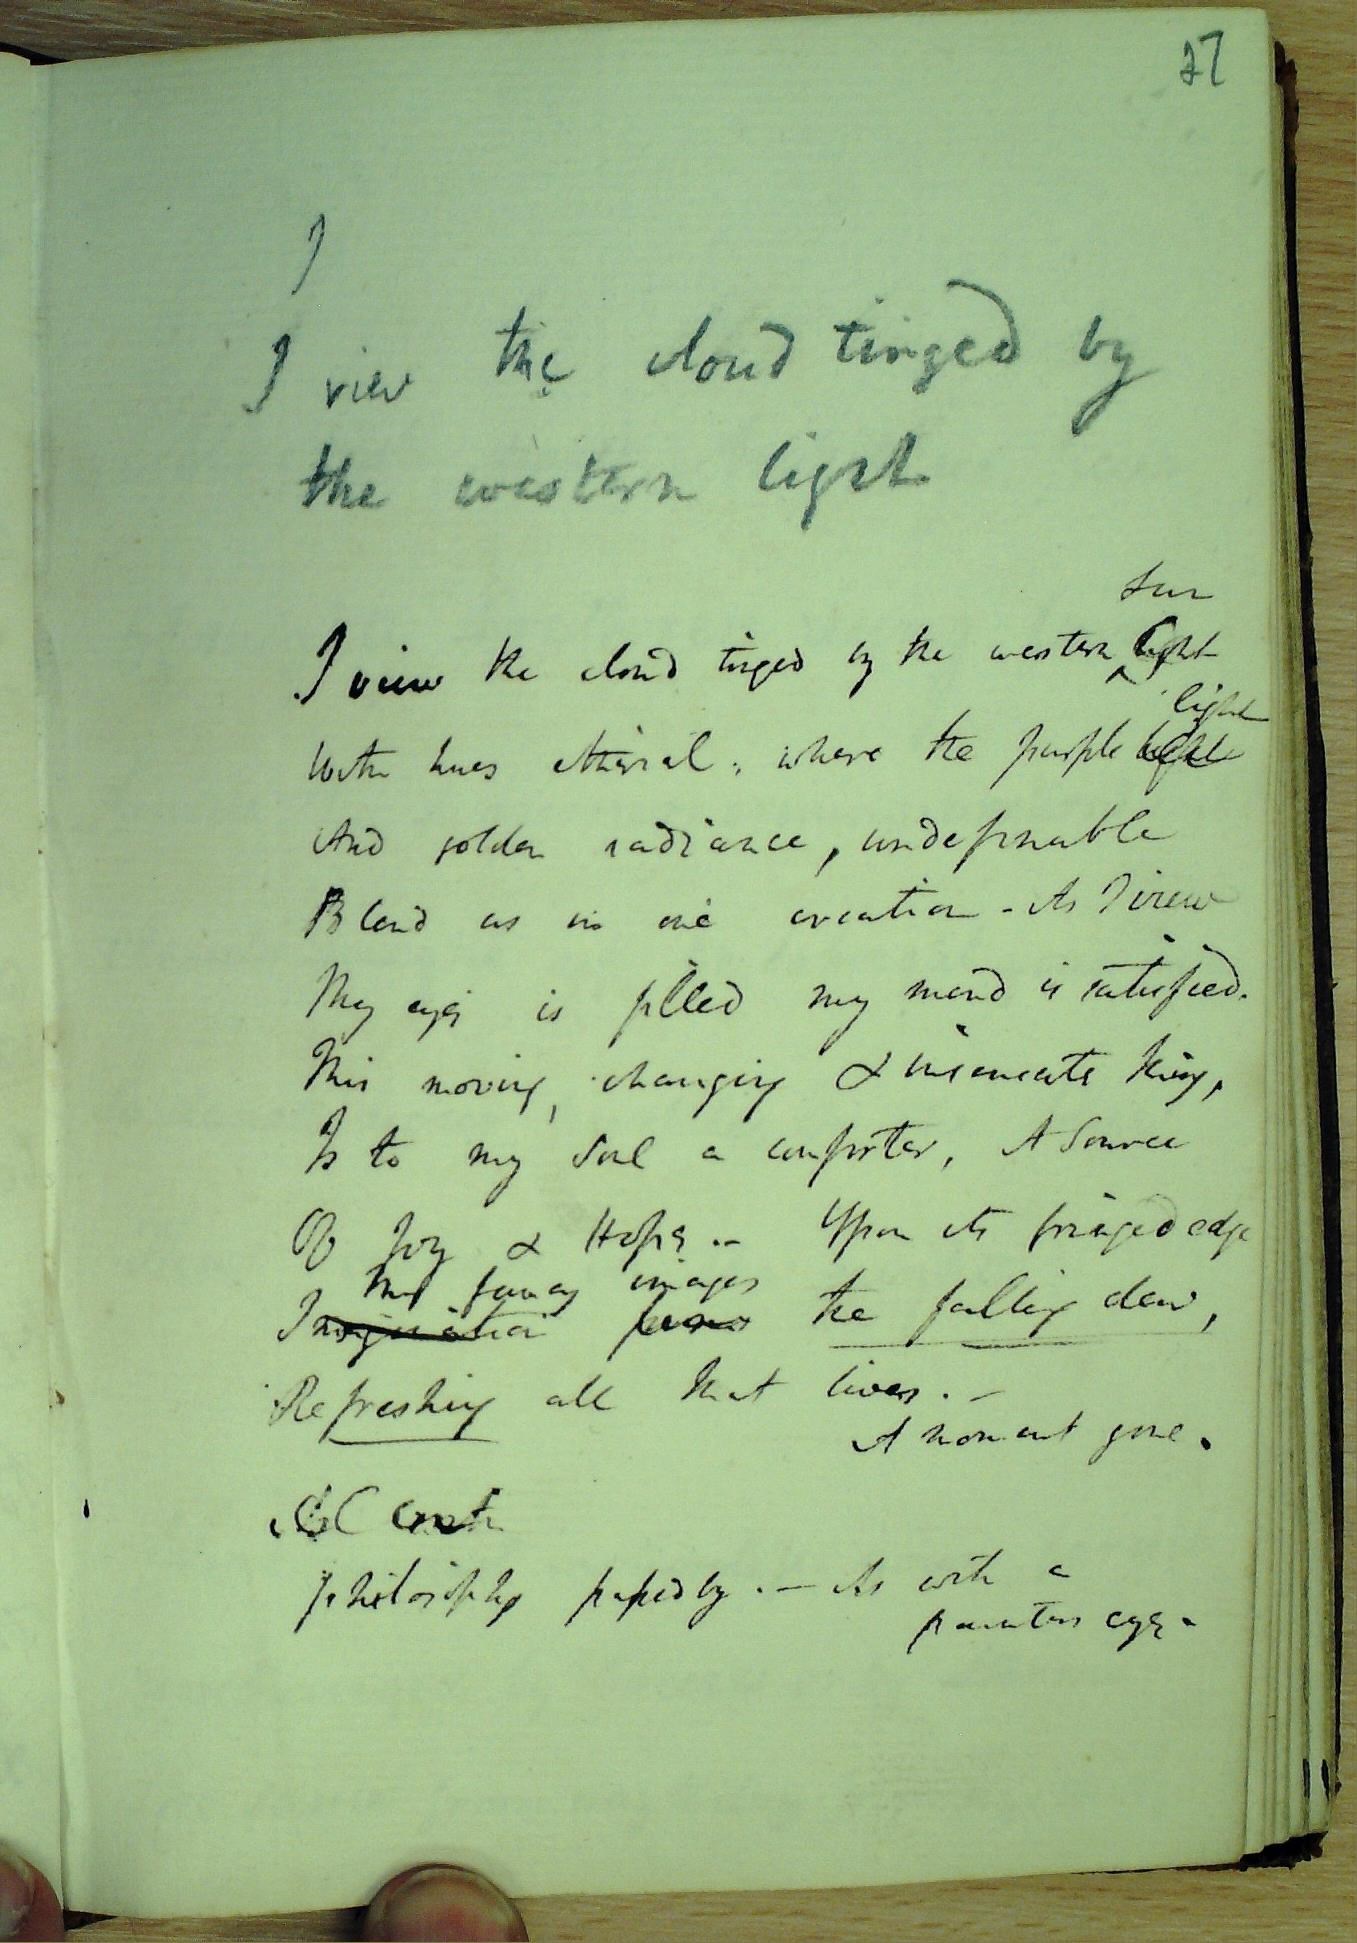 27
I
I view the cloud tinged by
the western light
sun
I view the cloud tinged by the western light
light
With hues etherial; where the purple light
And golden radiance, undefinable
Blend as in one creation - As I view
My eye is filled my mind is satisfied.
This moving, changing & inanimate thing,
Is to my soul a comforter, A source
Of Joy & Hope. - Upon its fringed edge
My fancy images
Imagination the falling dew,
Refreshing all that lives. -
A moment gone.
philosophy - As with a
painters eye -